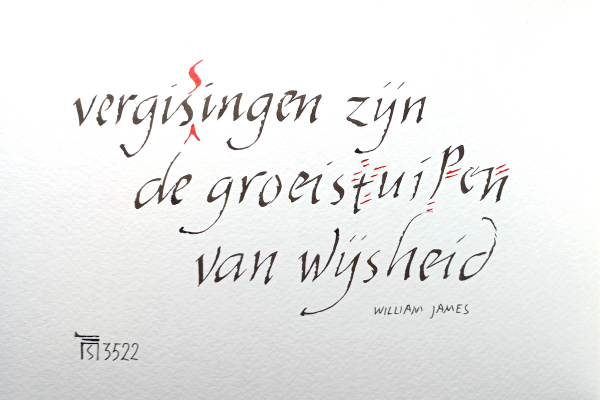 vergissingen zijn
de groeistuipen
van wijsheid
WILLIAM JAMES
3522